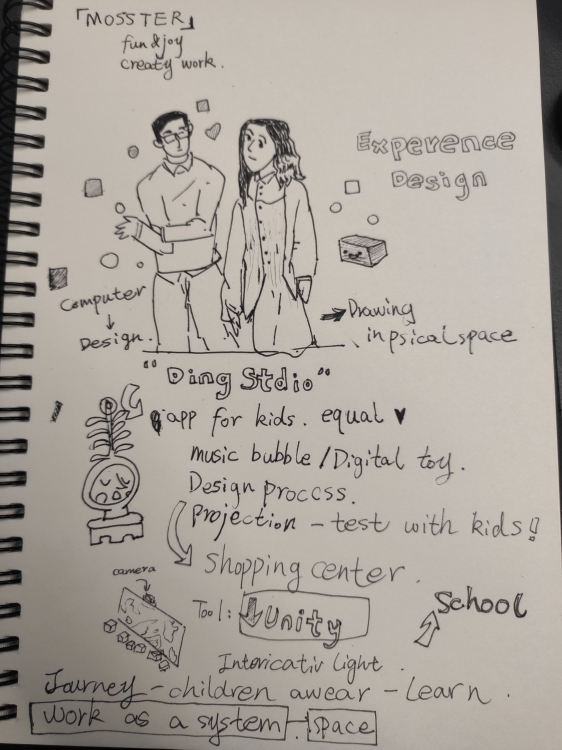 「MOSSTER」
fun & joy
creaty work.
Experence
Design
Computer
↓
Design.
→ Drawing
in psical space
"Ding Stdio"
app for kids. equal ♥
music bubble / Digital toy.
Design process.
projection - test with kids!
Shopping center.
camera
Tool: Unity
School
Intericativ light.
Journey - children awear - Learn.
work as a system - space